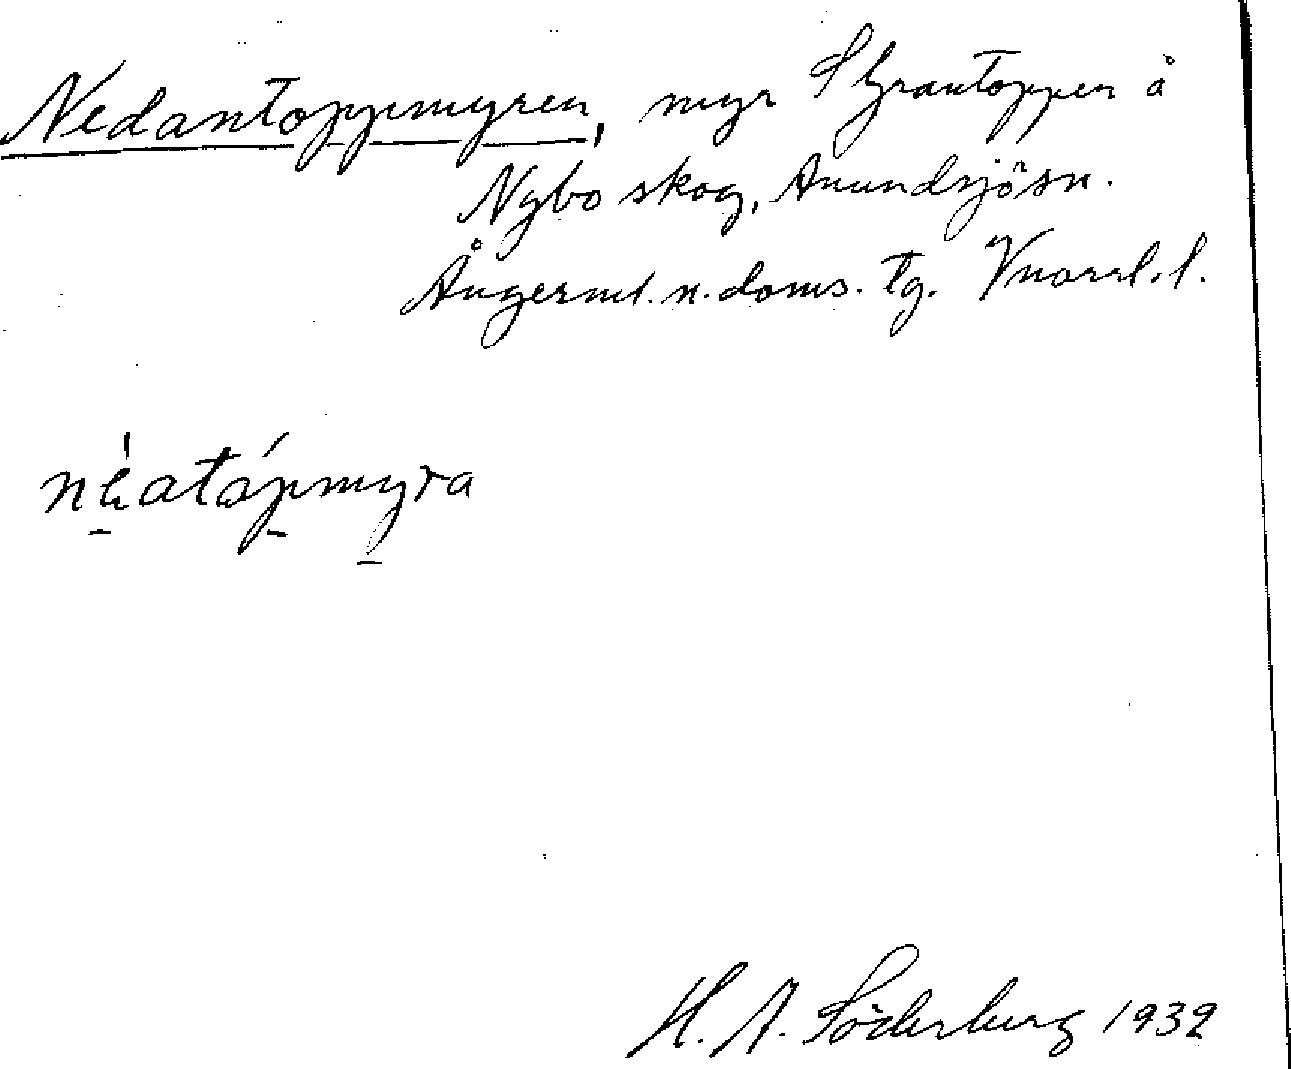 Nedantoppmyren, myr S Grantoppen å
Nybo skog, Anundsjö sn.
Ångerml. n. doms. tg. Vnorrl. l.
néatópmyra
H. A. Söderberg 1932